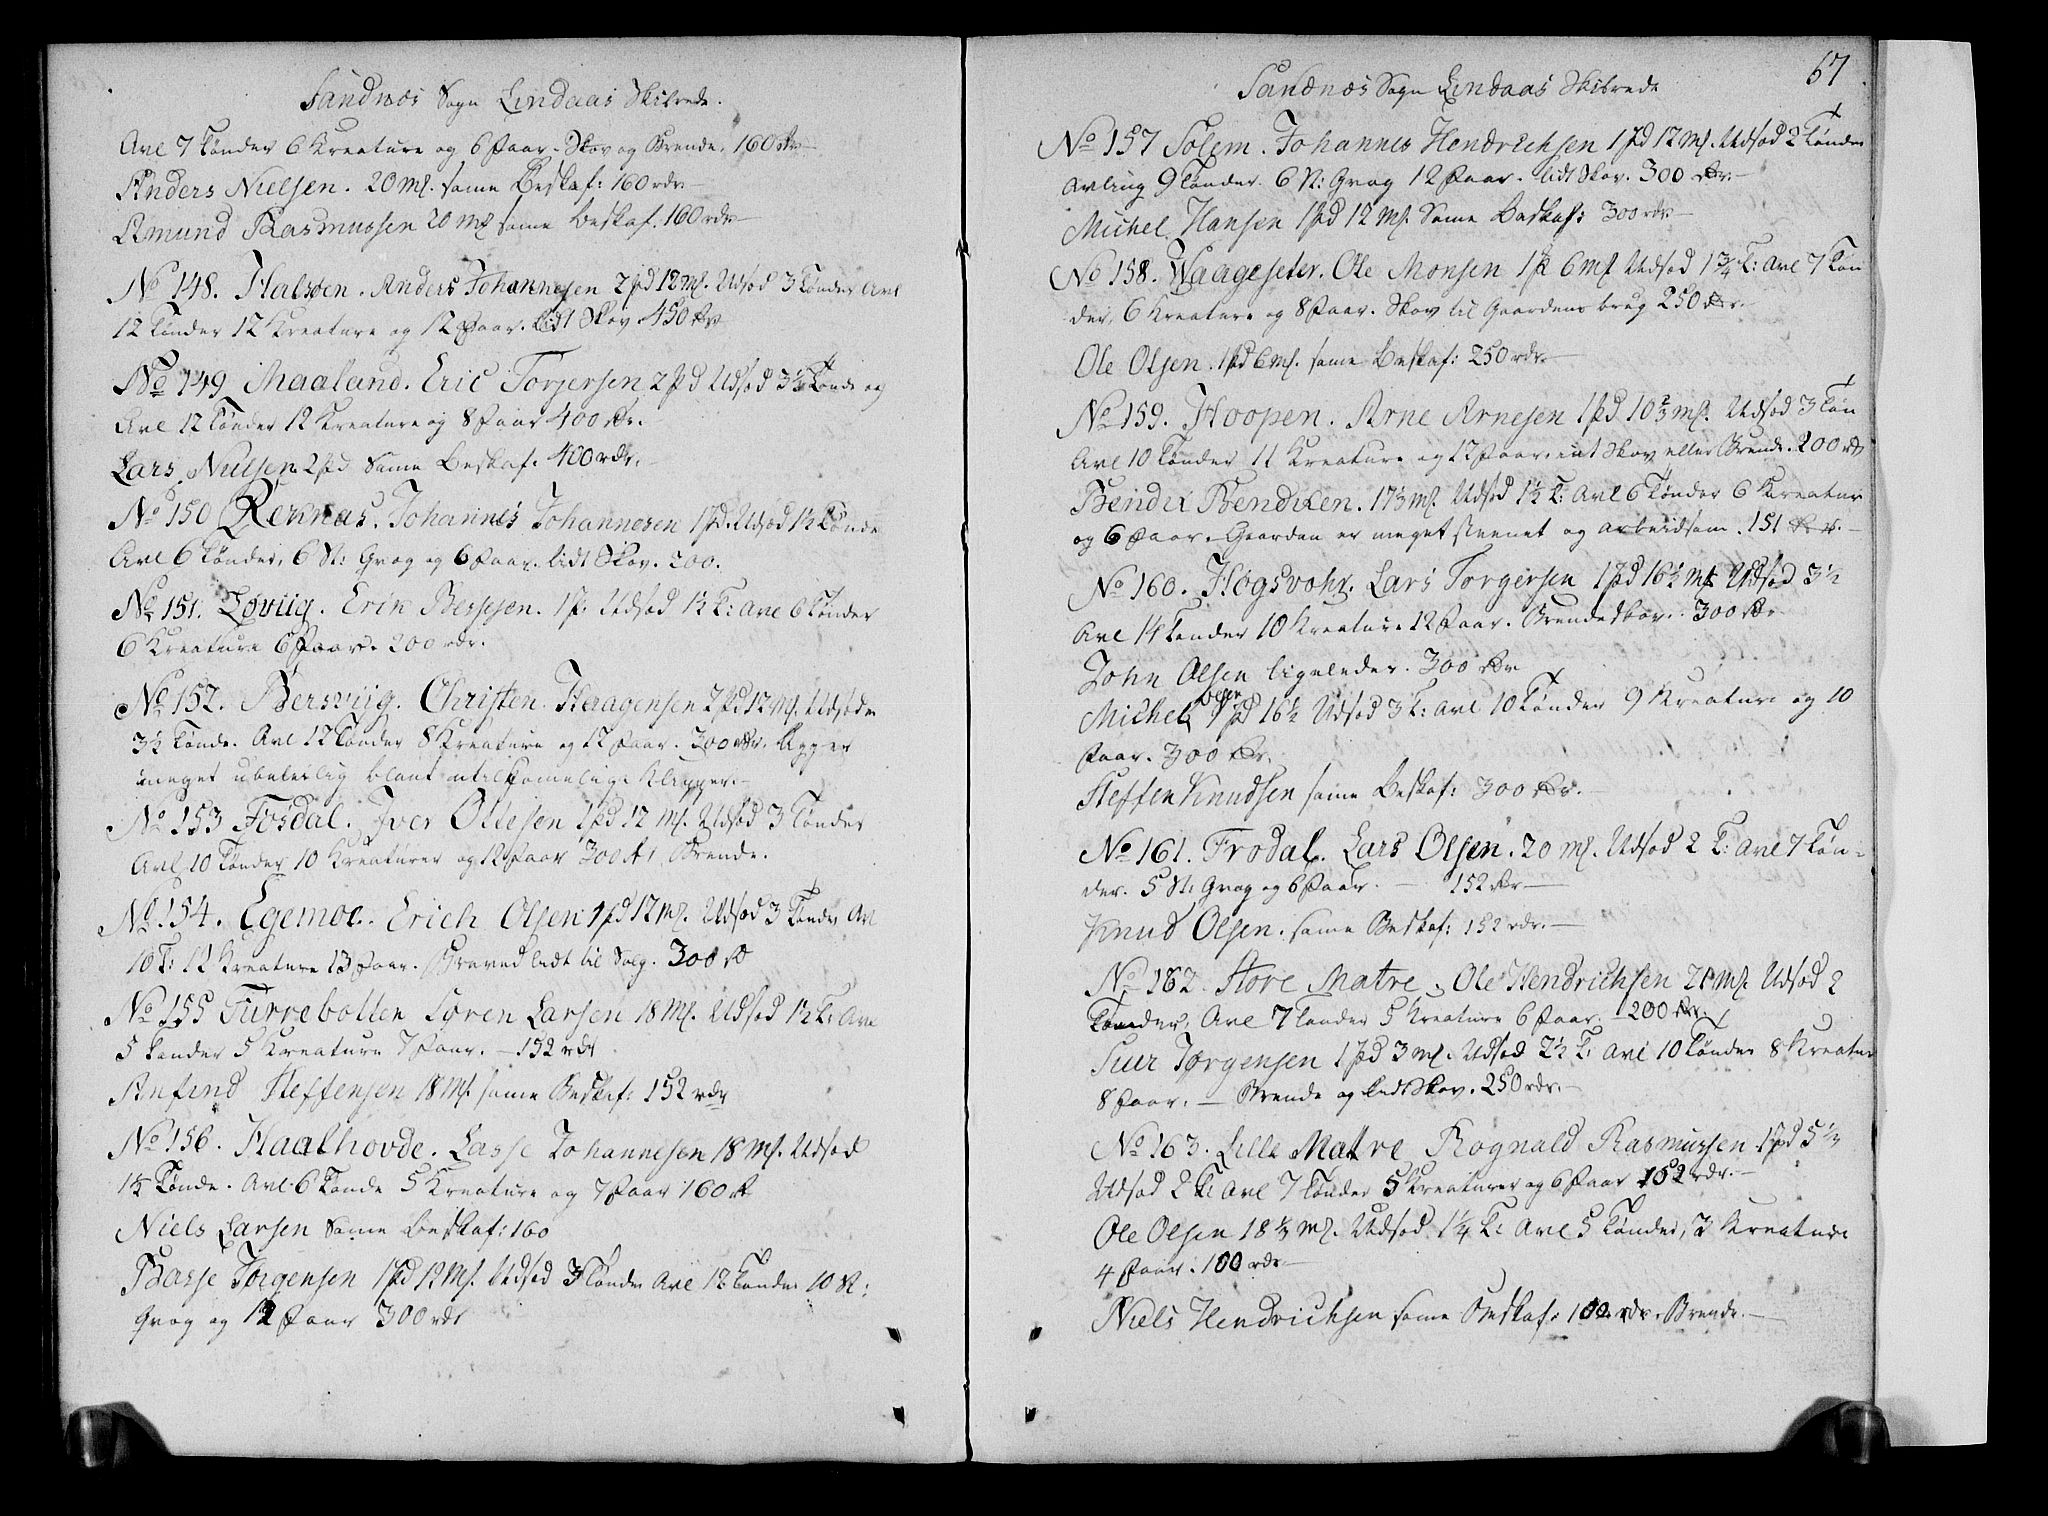 Sandnæs Sogn Lindaas Skibrede.
Avl 7 Tønder 6 Kreature og 6 Faar. Skov og Brende. 160 rdr
Anders Nielsen. 20 mk. same Beskaf: 160 rdr
Amund Rasmussen 20 mk same Beskaf. 160 rdr
No 148. Halsøen. Anders Johannesen 2 pd 12 mk. Udsæd 3 Tønder Avl
12 Tønder 12 Kreature og 12 Faar. lidt Skov 450 rdr
No 149 Maaland. Eric Torjersen 2 pd Udsæd 3½ Tønde og
Avl 12 Tønder 12 Kreature og 8 Faar 400 rdr.
Lars Nielsen 2 pd Same Beskaf. 400 rdr.
No 150 Reknæs. Johannes Johannesen 1 pd. Udsæd 1½ Tønde
Avl 6 Tønder, 6 St: Qvæg og 6 Faar. lidt Skov. 200.
No 151. Løviig. Erik Bessesen. 1 p. Udsæd 1½ T: Avl 6 Tønder
6 Kreature 6 Faar. 200 rdr.
No 152. Bersviig. Christen Haagensen 2 pd 12 mk. Udsæd
3½ Tønde. Avl 12 Tønder 8 Kreature og 12 Faar. 300 rdr. ligger
meget ubeleilig blant utilkomelige Klipper.
No 153 Fosdal. Iver Ollesen 1 pd 12 mk. Udsæd 3 Tønder
Avl 10 Tønder 10 Kreaturer og 12 Faar 300 rd, Brende.
No 154. Egemoe. Erich Olsen 1 pd 12 mk. Udsæd 3 Tønder Avl
10 T: 12 Kreature 13 Faar. Braved lidt til Salg. 300 rd
No 155 Turrebotten Søren Larsen 18 mk. Udsæd 1½ T: Avl
5 Tønder 5 Kreature 7 Faar. — 152 rdr
Anfind Steffensen 18 mk same Beskaf: 152 rdr
No 156. Haalhovde. Lasse Johannesen 18 mk. Udsæd
1½ Tønde. Avl 6 Tønde 5 Kreature og 7 Faar 160 rd
Niels Larsen Same Beskaf: 160
Basse Jørgensen 1 pd 12 mk. Udsæd 3 Tønder Avl 12 Tønder 10 St:
Qvæg og 12 Faar 300 rdr
67
Sandnæs Sogn Lindaas Skibrede
No 157 Solem. Johannes Hendrichsen 1 pd 12 mk. Udsæd 2 Tønder
Avling 9 Tønder. 6 St: Qvæg 12 Faar. lidt Skov. 300 rdr.
Michel Hansen 1 pd 12 mk. Same Beskaf: 300 rdr
No 158. Waageseter. Ole Monsen 1 p 6 mk Udsæd 1¾ T: Avl 7 Tøn
der, 6 Kreature og 8 Faar. Skov til Gaardens brug 250 rdr.
Ole Olsen. 1 pd 6 mk. same Beskaf: 250 rdr.
No 159. Hoopen. Arne Arnesen 1 pd 10⅔ mk. Udsæd 3 Tøn
Avl 10 Tønder 11 Kreature og 12 Faar. ent Skov eller Brende. 200 rdr
Bendix Bendixen. 17⅓ mk. Udsæd 1½ T: Avl 6 Tønder 6 Kreatur
og 6 Faar. Gaarden er meget steenet og arbeidsom. 151 rdr.
No 160. Høgsvohr. Lars Torgersen 1 pd 16½ mk Udsæd 3½
Avl 14 Tønder 10 Kreature 12 Faar. Brendeskov. 300 rdr
John Olsen ligeleder. 300 rdr
Michel Olsen 1 pd 16½ Udsæd 3 T: Avl 10 Tønder 9 Kreature og 10
Faar. 300 rdr.
Steffen Knudsen same Beskaf: 300 rdr.
No 161. Frodal. Lars Olsen. 20 mk. Udsæd 2 T: Avl 7 Tøn-
der. 5 St: Qvæg og 6 Faar. — 152 rdr —
Knud Olsen. same Beskaf: 152 rdr. —
No 162. Store Matre. Ole Hendrichsen 21 mk. Udsæd 2
Tønder. Avl 7 Tønder 5 Kreature 6 Faar. — 200 rdr.
Siur Jørgensen 1 pd 3 mk. Udsæd 2½ T: Avl 10 Tønder 8 Kreatur
8 Faar. — Brende og lidt Skov. 250 rdr.—
No 163. Lille Matre Rognald Rasmussen 1 pd 5⅓
Udsæd 2 T: Avl 7 Tønder 5 Kreaturer og 6 Faar 152 rdr.—
Ole Olsen 18⅓ mk. Udsæd 1¼ T: Avl 5 Tønder, 3 Kreature
4 Faar. 100 rdr—
Niels Hendrichsen same Beskaf. 100 rdr. Brende. —